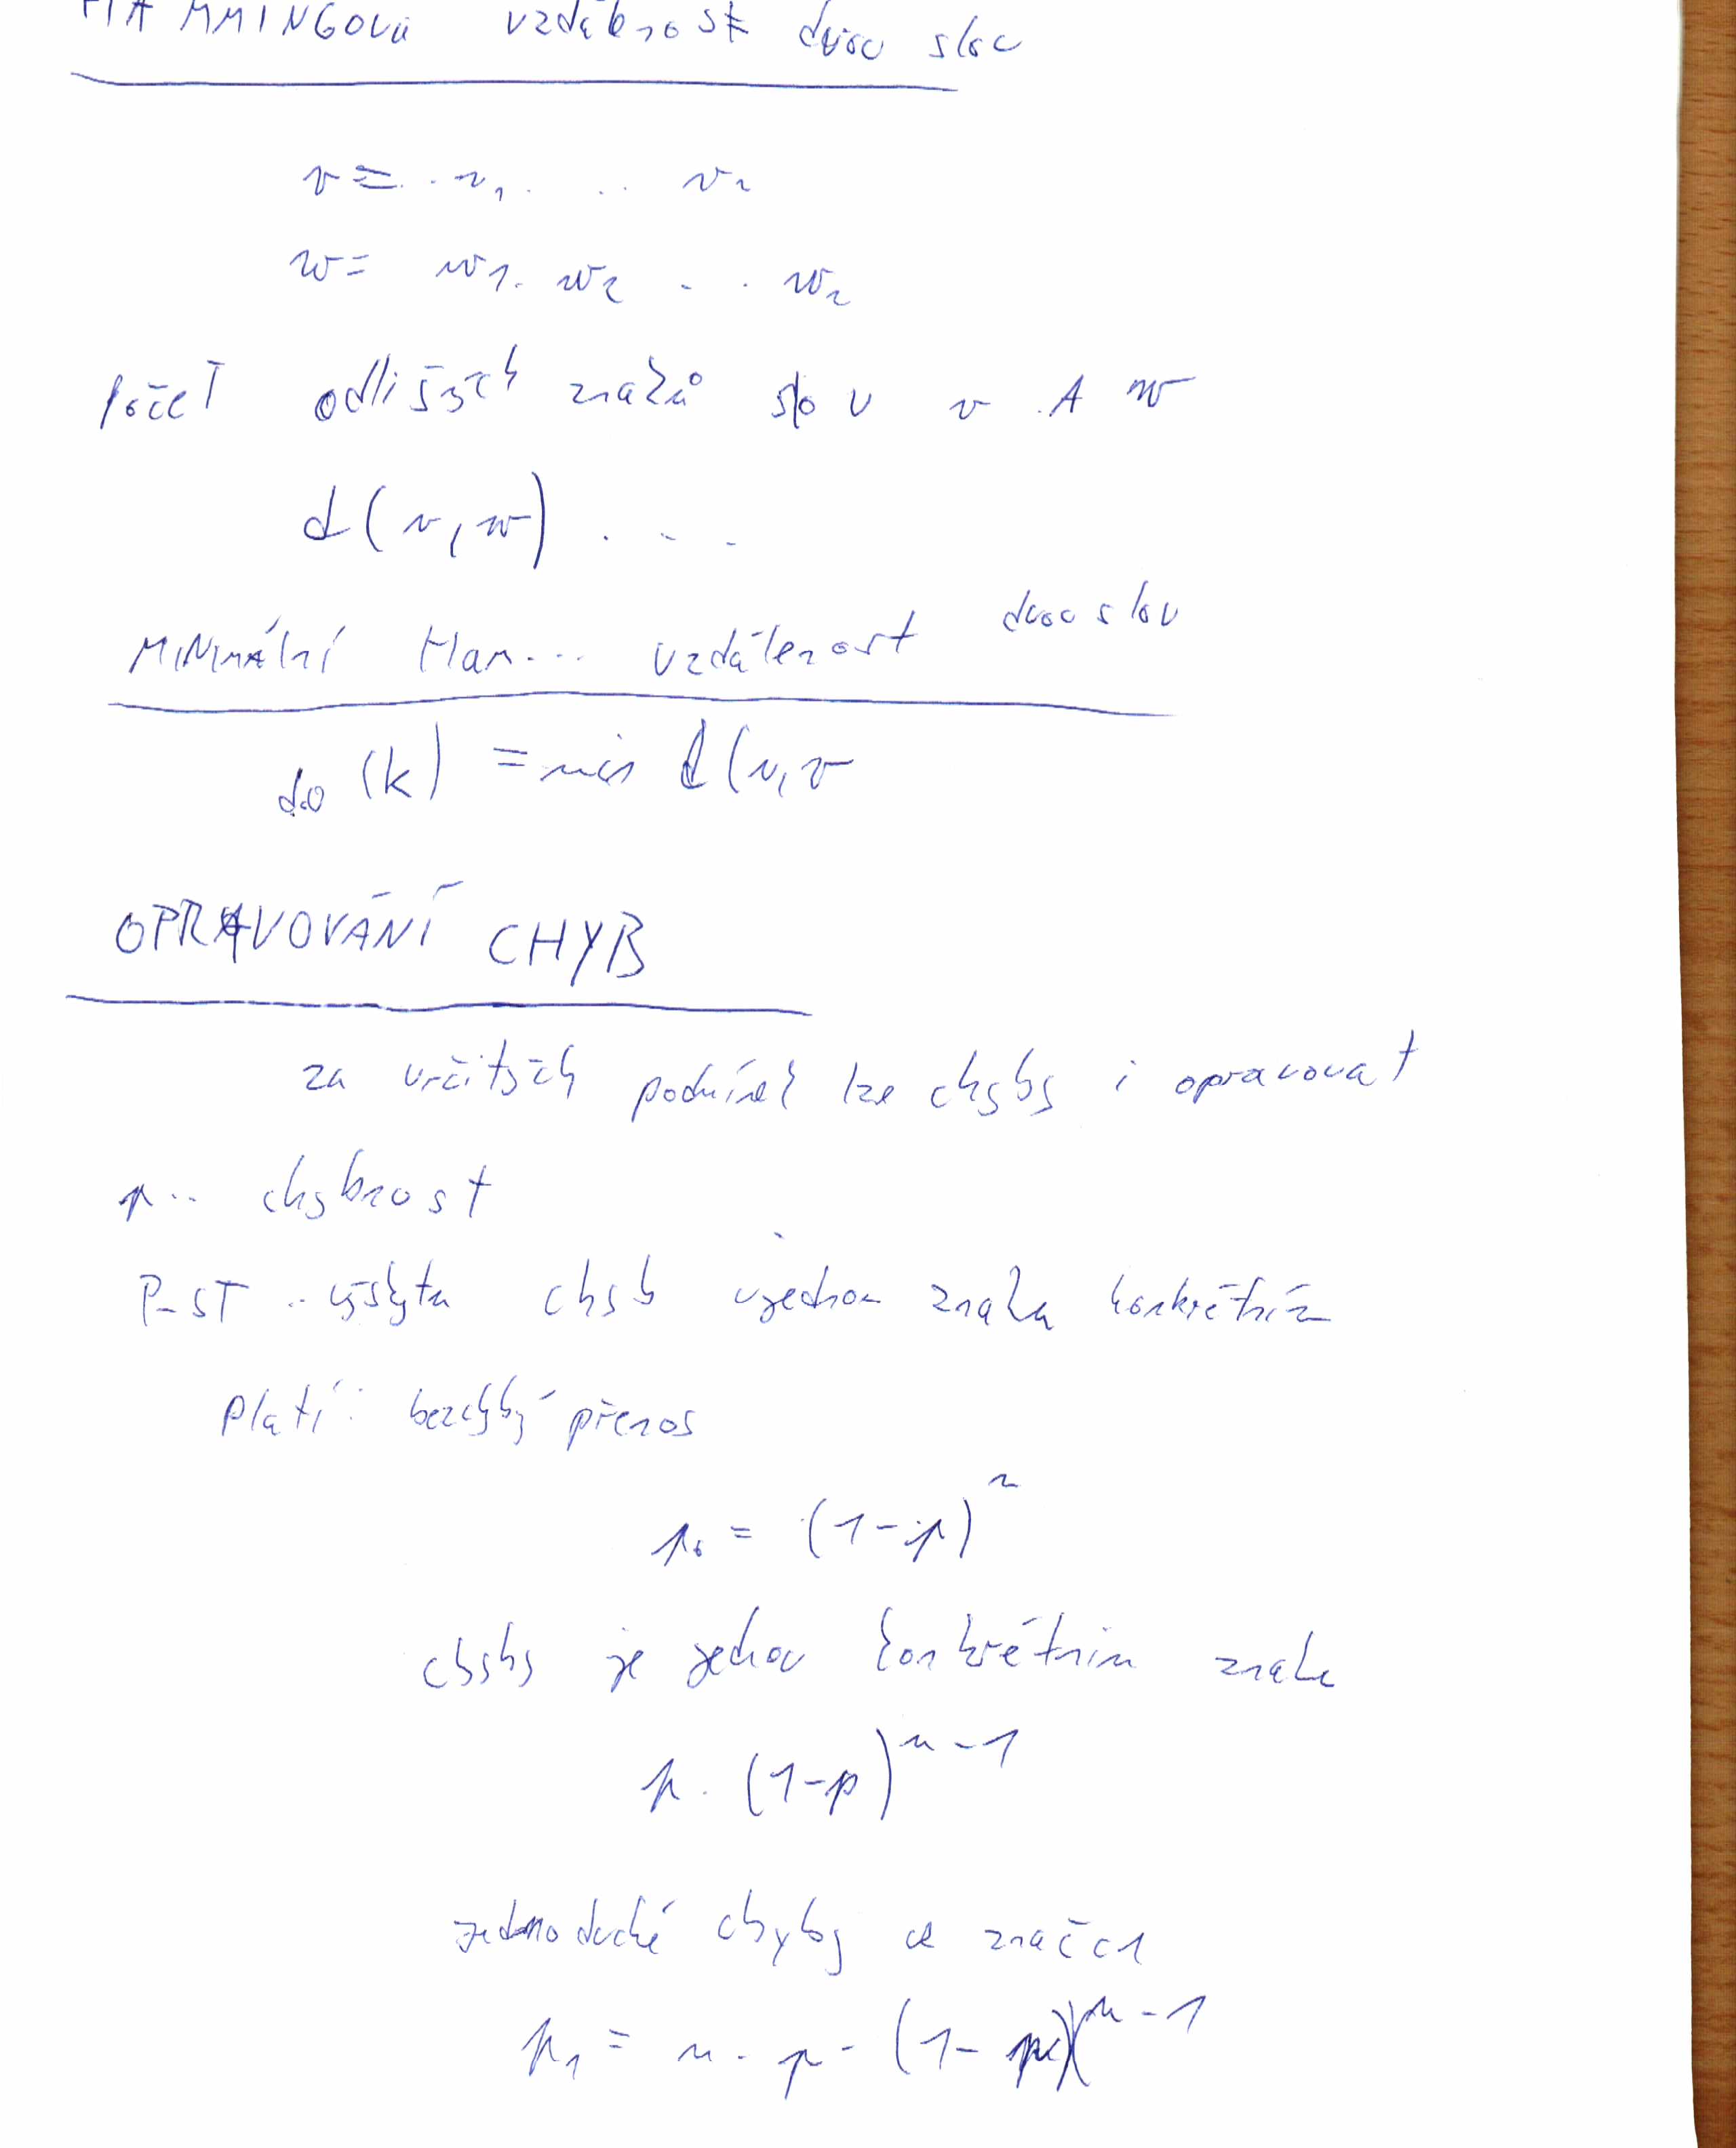 HAMMINGOVA vzdálenost dvou slov
v = . v₁ . . . vₙ
w = w₁ . w₂ . . wₙ
počet odlišných znaků slov v A w
d(v, w) . . .
MINIMÁlní Ham... vzdálenost dvou slov
d₀ (k) = min d(v, v
OPRAVOVÁNÍ CHYB
za určitých podmínek lze chyby i opravovat
p .. chybnost
P-ST .. výskytu chyb v jednom znaku konkrétním
Platí: bezchybný přenos
p₀ = (1-p)ⁿ
chyby je jednou konkrétním znaku
p . (1-p)ⁿ⁻¹
jednoduché chyby ve
p₁ = n . p . (1-p)ⁿ⁻¹